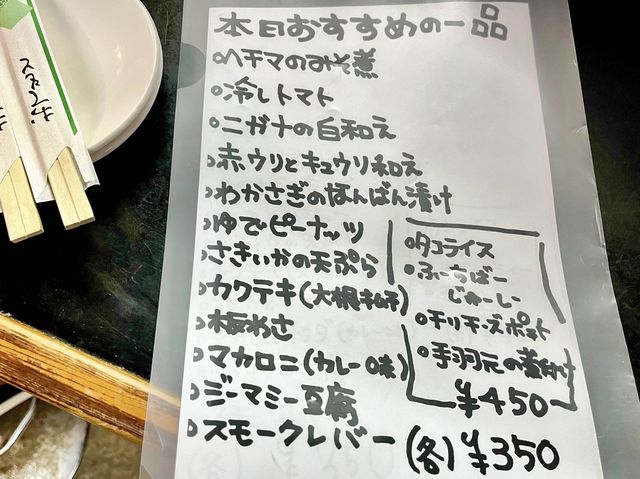 本日おすすめの一品
○ヘチマのみそ煮
○冷しトマト
○ニガナの白和え
○赤ウリとキュウリ和え
○わかさぎのなんばん漬け
○ゆでピーナッツ
○さきいかの天ぷら
○カクテキ(大根キムチ)
○板わさ
○マカロニ(カレー味)
○ジーマミー豆腐
○スモークレバー
(各)¥350
○タコライス
○ふーちばー
じゅーしー
○チリチーズポテト
○手羽元の煮付け
¥450